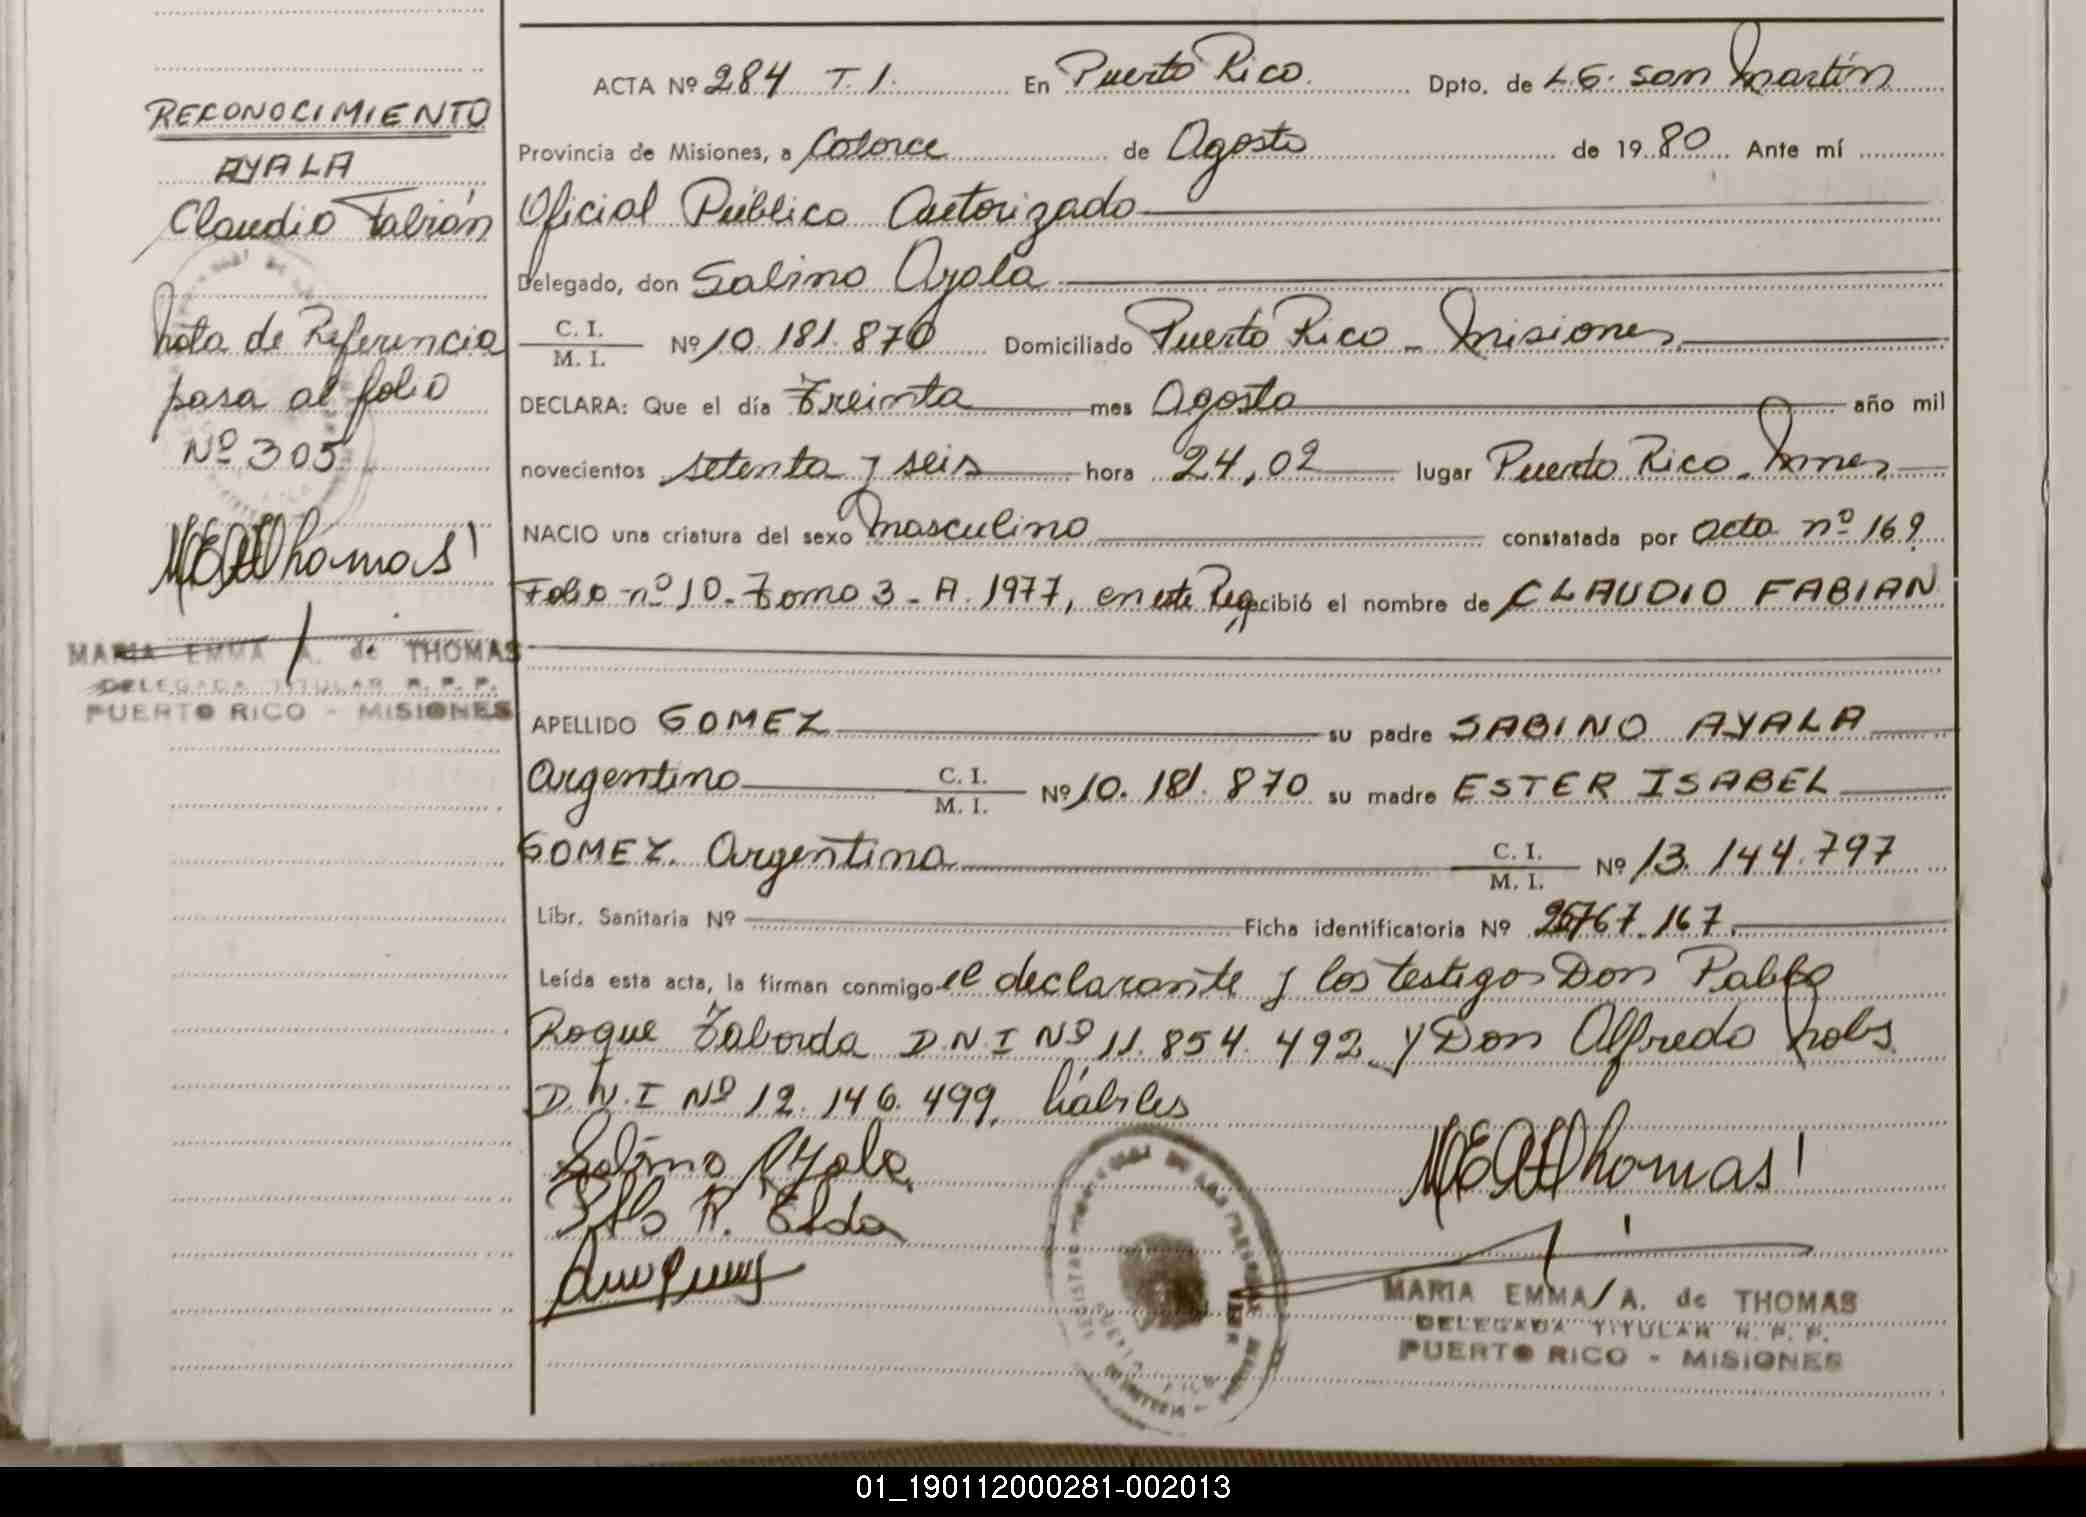 RECONOCIMIENTO
AYALA
Claudio Fabián
Nota de Referencia
pasa al folio
Nº 305
MEAThomas
MARIA EMMA A. de THOMAS
DELEGADA TITULAR R. P. P.
PUERTO RICO - MISIONES
ACTA Nº 284 T. 1. En Puerto Rico. Dpto. de L. G. San Martín
Provincia de Misiones, a Catorce de Agosto de 1980 Ante mí
Oficial Público Autorizado
Delegado, don Sabino Ayala
C. I. / M. I. Nº 10.181.870 Domiciliado Puerto Rico - Misiones
DECLARA: Que el día Treinta mes Agosto año mil
novecientos setenta y seis hora 24,02 lugar Puerto Rico - Mnes
NACIO una criatura del sexo Masculino constatada por acta nº 169
Folio nº 10. Tomo 3 - A. 1977, en este Reg recibió el nombre de CLAUDIO FABIAN
APELLIDO GOMEZ su padre SABINO AYALA
Argentino C. I. / M. I. Nº 10.181.870 su madre ESTER ISABEL
GOMEZ. Argentina C. I. / M. I. Nº 13.144.797
Libr. Sanitaria Nº Ficha identificatoria Nº 767.167
Leída esta acta, la firman conmigo el declarante y los testigos Don Pablo
Roque Taborda D.N.I Nº 11.854.492 y Don Alfredo
D.N.I Nº 12.146.499. hábiles
Sabino Ayala
MEAThomas
MARIA EMMA A. de THOMAS
DELEGADA TITULAR R. P. P.
PUERTO RICO - MISIONES
01_190112000281-002013